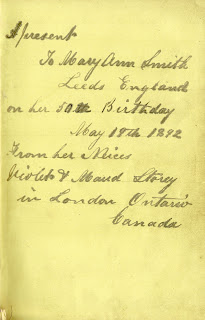 A present
To Mary Ann Smith
Leeds England
on her 50th Birthday
May 18th 1892
From her Nieces
Violet & Maud Storey
in London Ontario
Canada